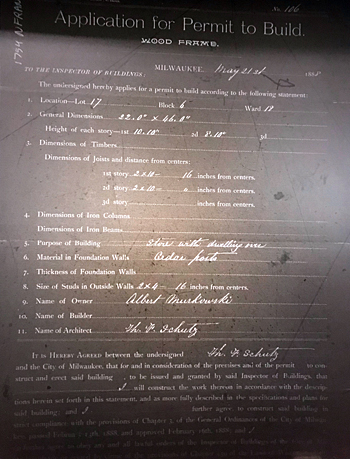 No. 106
1754 N FRA
Application for Permit to Build.
WOOD FRAME.
TO THE INSPECTOR OF BUILDINGS: MILWAUKEE, May 21st 1888
The undersigned hereby applies for a permit to build according to the following statement:
1. Location—Lot 17 Block 6 Ward 18
2. General Dimensions 22.0" x 46.0"
Height of each story—1st 10.10" 2d 8.10" 3d
3. Dimensions of Timbers
Dimensions of Joists and distance from centers:
1st story 2x10— 16 inches from centers.
2d story 2x10— " inches from centers.
3d story inches from centers.
4. Dimensions of Iron Columns
Dimensions of Iron Beams
5. Purpose of Building Store with dwelling over
6. Material in Foundation Walls Cedar posts
7. Thickness of Foundation Walls
8. Size of Studs in Outside Walls 2x4— 16 inches from centers.
9. Name of Owner Albert Murkowski
10. Name of Builder
11. Name of Architect Th. F. Schutz
IT IS HEREBY AGREED between the undersigned Th. F. Schutz
and the City of Milwaukee, that for and in consideration of the premises and of the permit to con-
struct and erect said building , to be issued and granted by said Inspector of Buildings, that
I will construct the work thereon in accordance with the descrip-
tions herein set forth in this statement, and as more fully described in the specifications and plans for
said building; and I further agree, to construct said building in
strict compliance with the provisions of Chapter of the General Ordinances of the City of Milwau-
kee, passed February 13th, 1888, and approved February 1888; and I